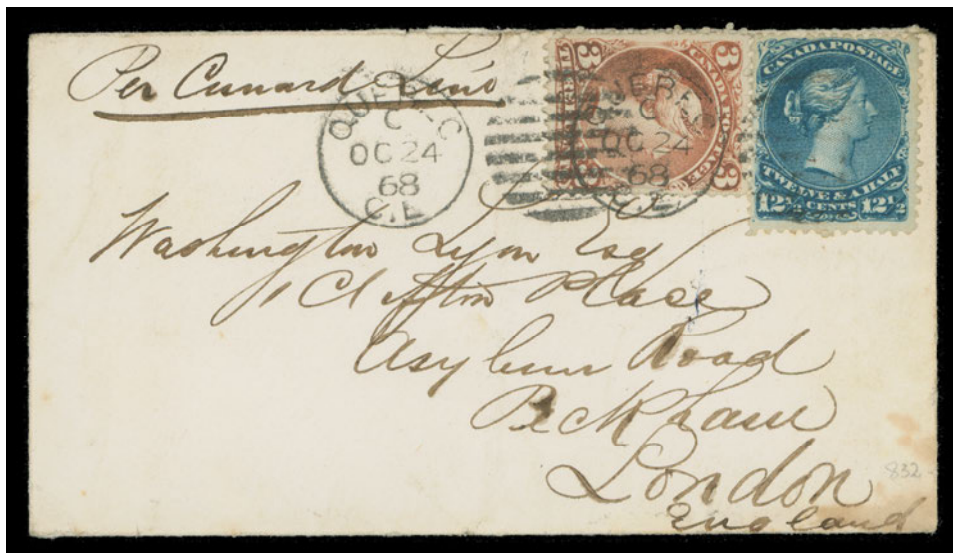 Per Cunard Line
QUEBEC
C
OC 24
68
C.E
QUEBEC
C
OC 24
68
C.E
3 CANADA POSTAGE 3
CANADA POSTAGE
TWELVE & A HALF
12½ CENTS 12½
Washington Lyon Esq
1 Clifton Place
Asylum Road
Peckham
London
England
832